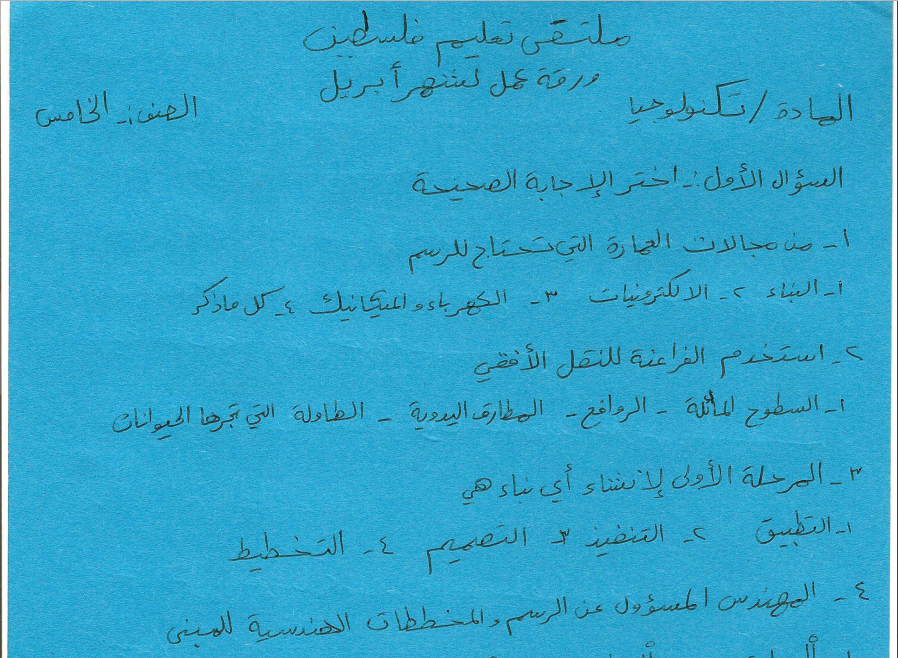 ملتقى تعليم فلسطين
ورقة عمل لشهر أبريل
المادة / تكنولوجيا الصف :- الخامس
السؤال الأول :- اختر الإجابة الصحيحة
١- من مجالات العمارة التي تحتاج للرسم
١- البناء ٢- الالكترونيات ٣- الكهرباء والميكانيك ٤- كل ماذكر
٢- استخدم الفراعنة للنقل الأفقي
١- السطوح المائلة - الروافع - المطارق اليدوية - الطاولة التي تجرها الحيوانات
٣- المرحلة الأولى لإنشاء أي بناء هي
١- التطبيق ٢- التنفيذ ٣- التصميم ٤- التخطيط
٤- المهندس المسؤول عن الرسم والمخططات الهندسية للمبنى